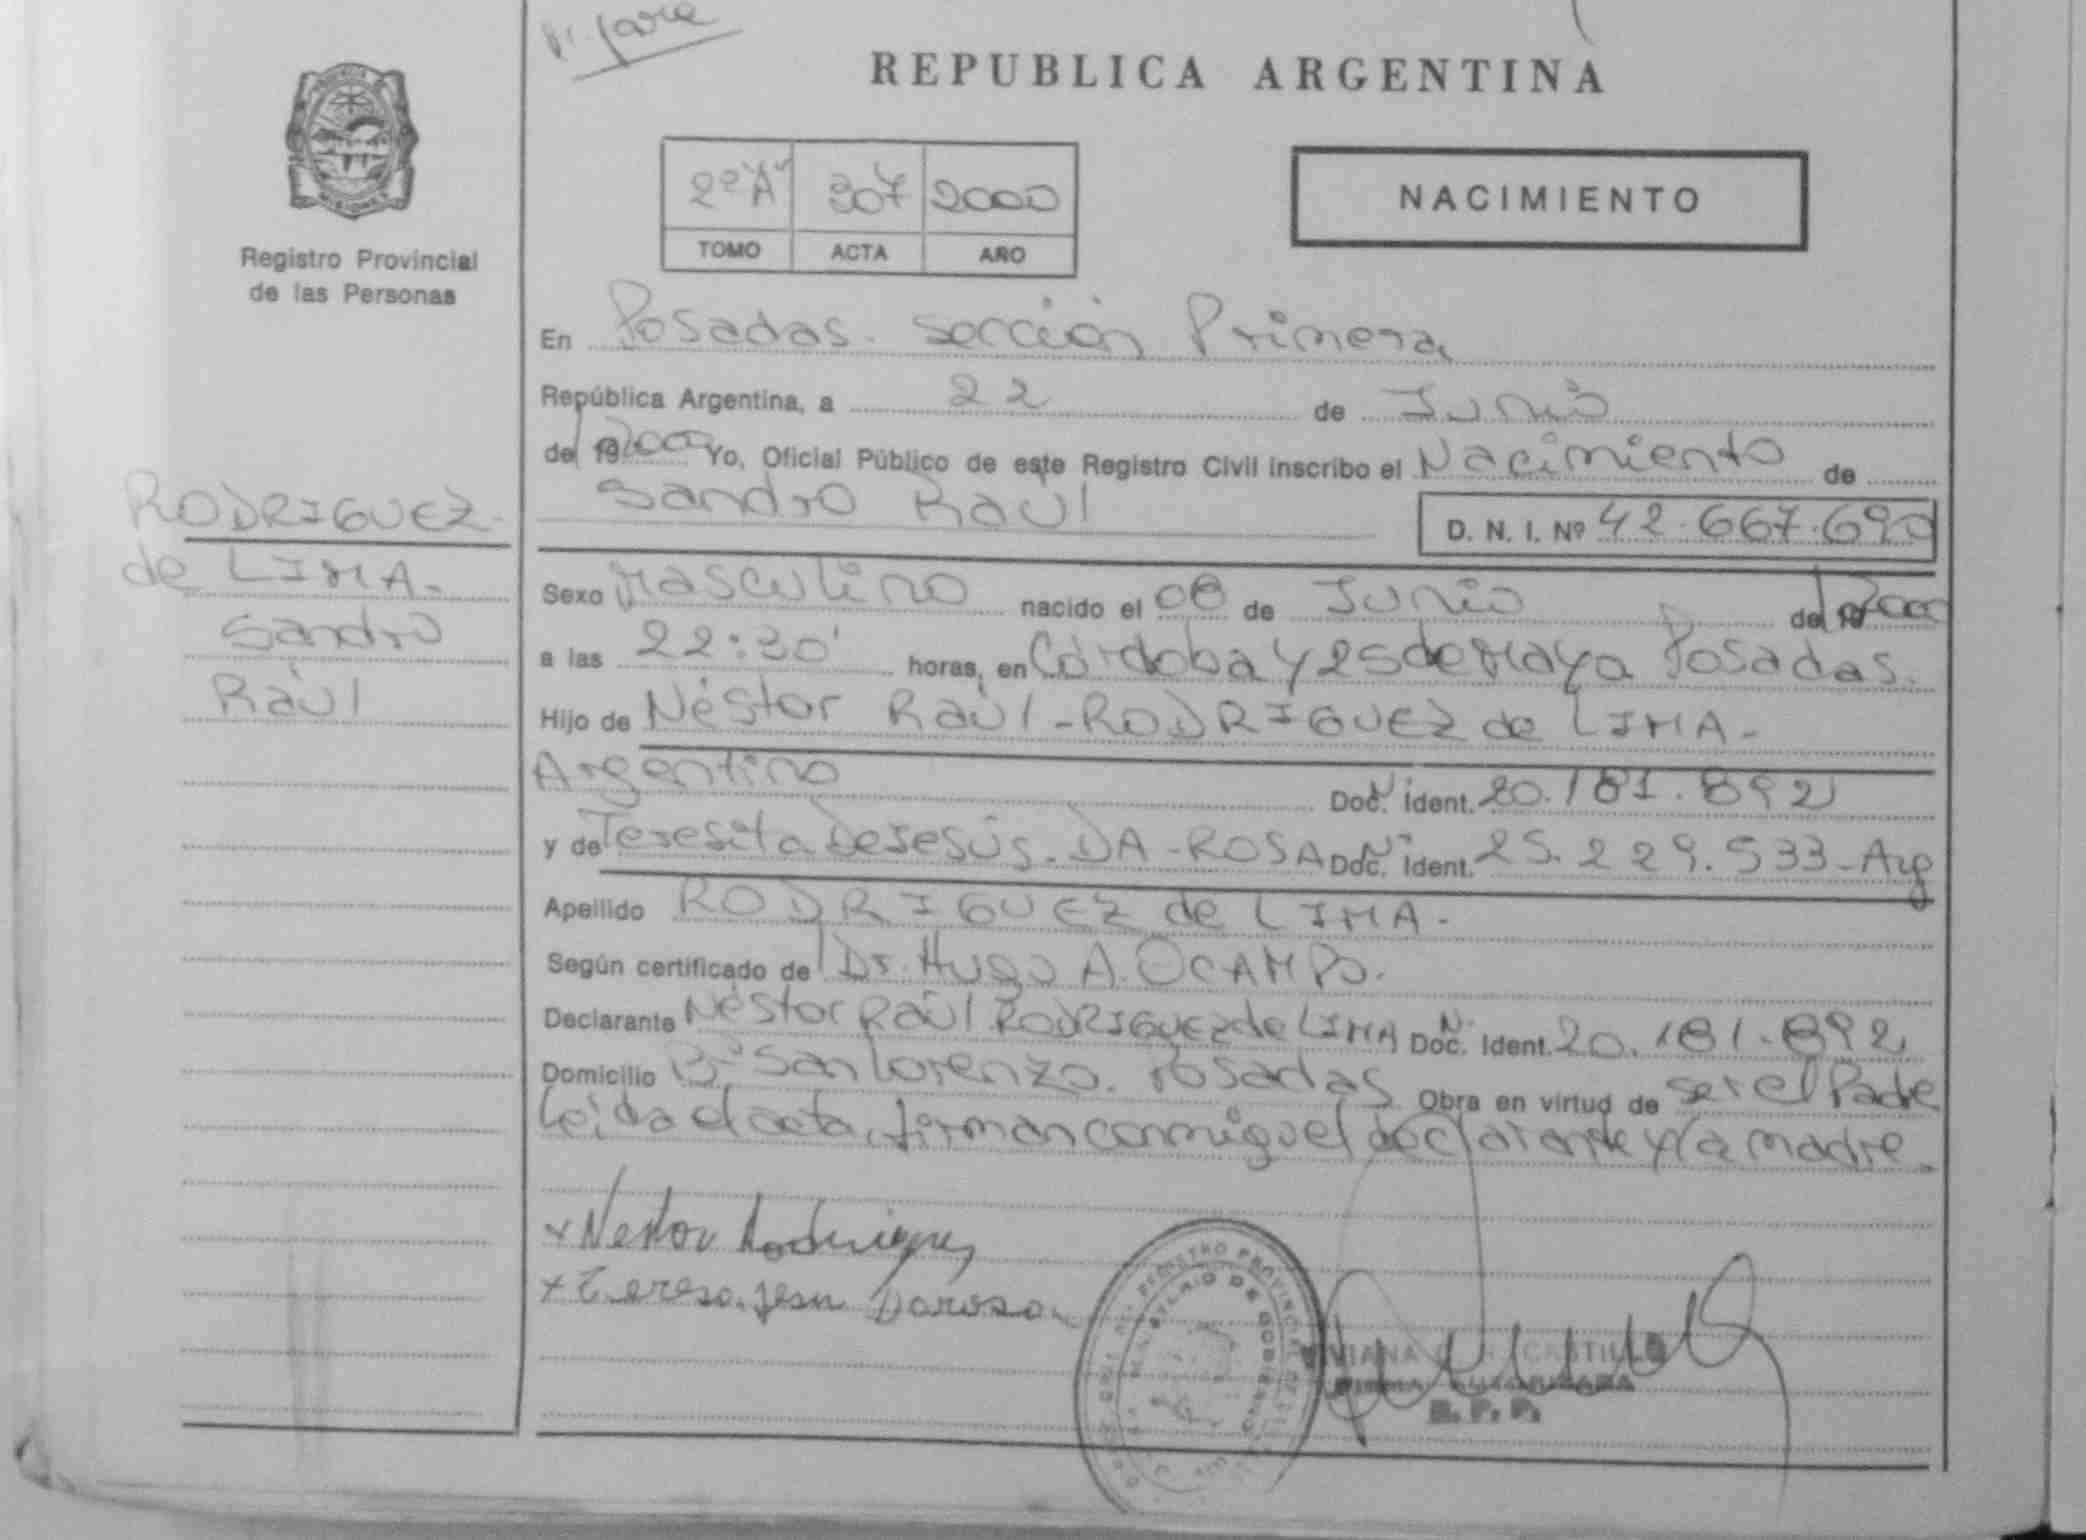 REPUBLICA ARGENTINA
2º "A" 307 2000
TOMO ACTA AÑO
NACIMIENTO
Registro Provincial
de las Personas
RODRIGUEZ
de LIMA.
Sandro
Raúl
En Posadas. Sección Primera
República Argentina, a 22 de Junio
del 19 2000 Yo, Oficial Público de este Registro Civil inscribo el Nacimiento de
Sandro Raúl D. N. I. Nº 42.667.690
Sexo Masculino nacido el 08 de Junio del 19 2000
a las 22:30' horas, en Córdoba y 25 de Mayo Posadas.
Hijo de Néstor Raúl - RODRIGUEZ de LIMA.
Argentino Doc. Nº Ident. 20.181.892
y de Teresita De Jesús. DA - ROSA Doc. Nº Ident. 25.229.533 - Arg
Apellido RODRIGUEZ de LIMA.
Según certificado de Dr. Hugo A. OCAMPO.
Declarante Néstor Raúl RODRIGUEZ de LIMA Doc. Nº Ident. 20.181.892
Domicilio Bº San Lorenzo. Posadas Obra en virtud de ser el Padre
Leída el acta, firman conmigo el declarante y la madre.
x Nestor Rodriguez
x Teresa Jesu Darosa
REGISTRO PROVINCIAL DE
MINISTERIO DE GOBIERNO
VIVIANA CASTILLO
FIRMA AUTORIZADA
R. P. P.